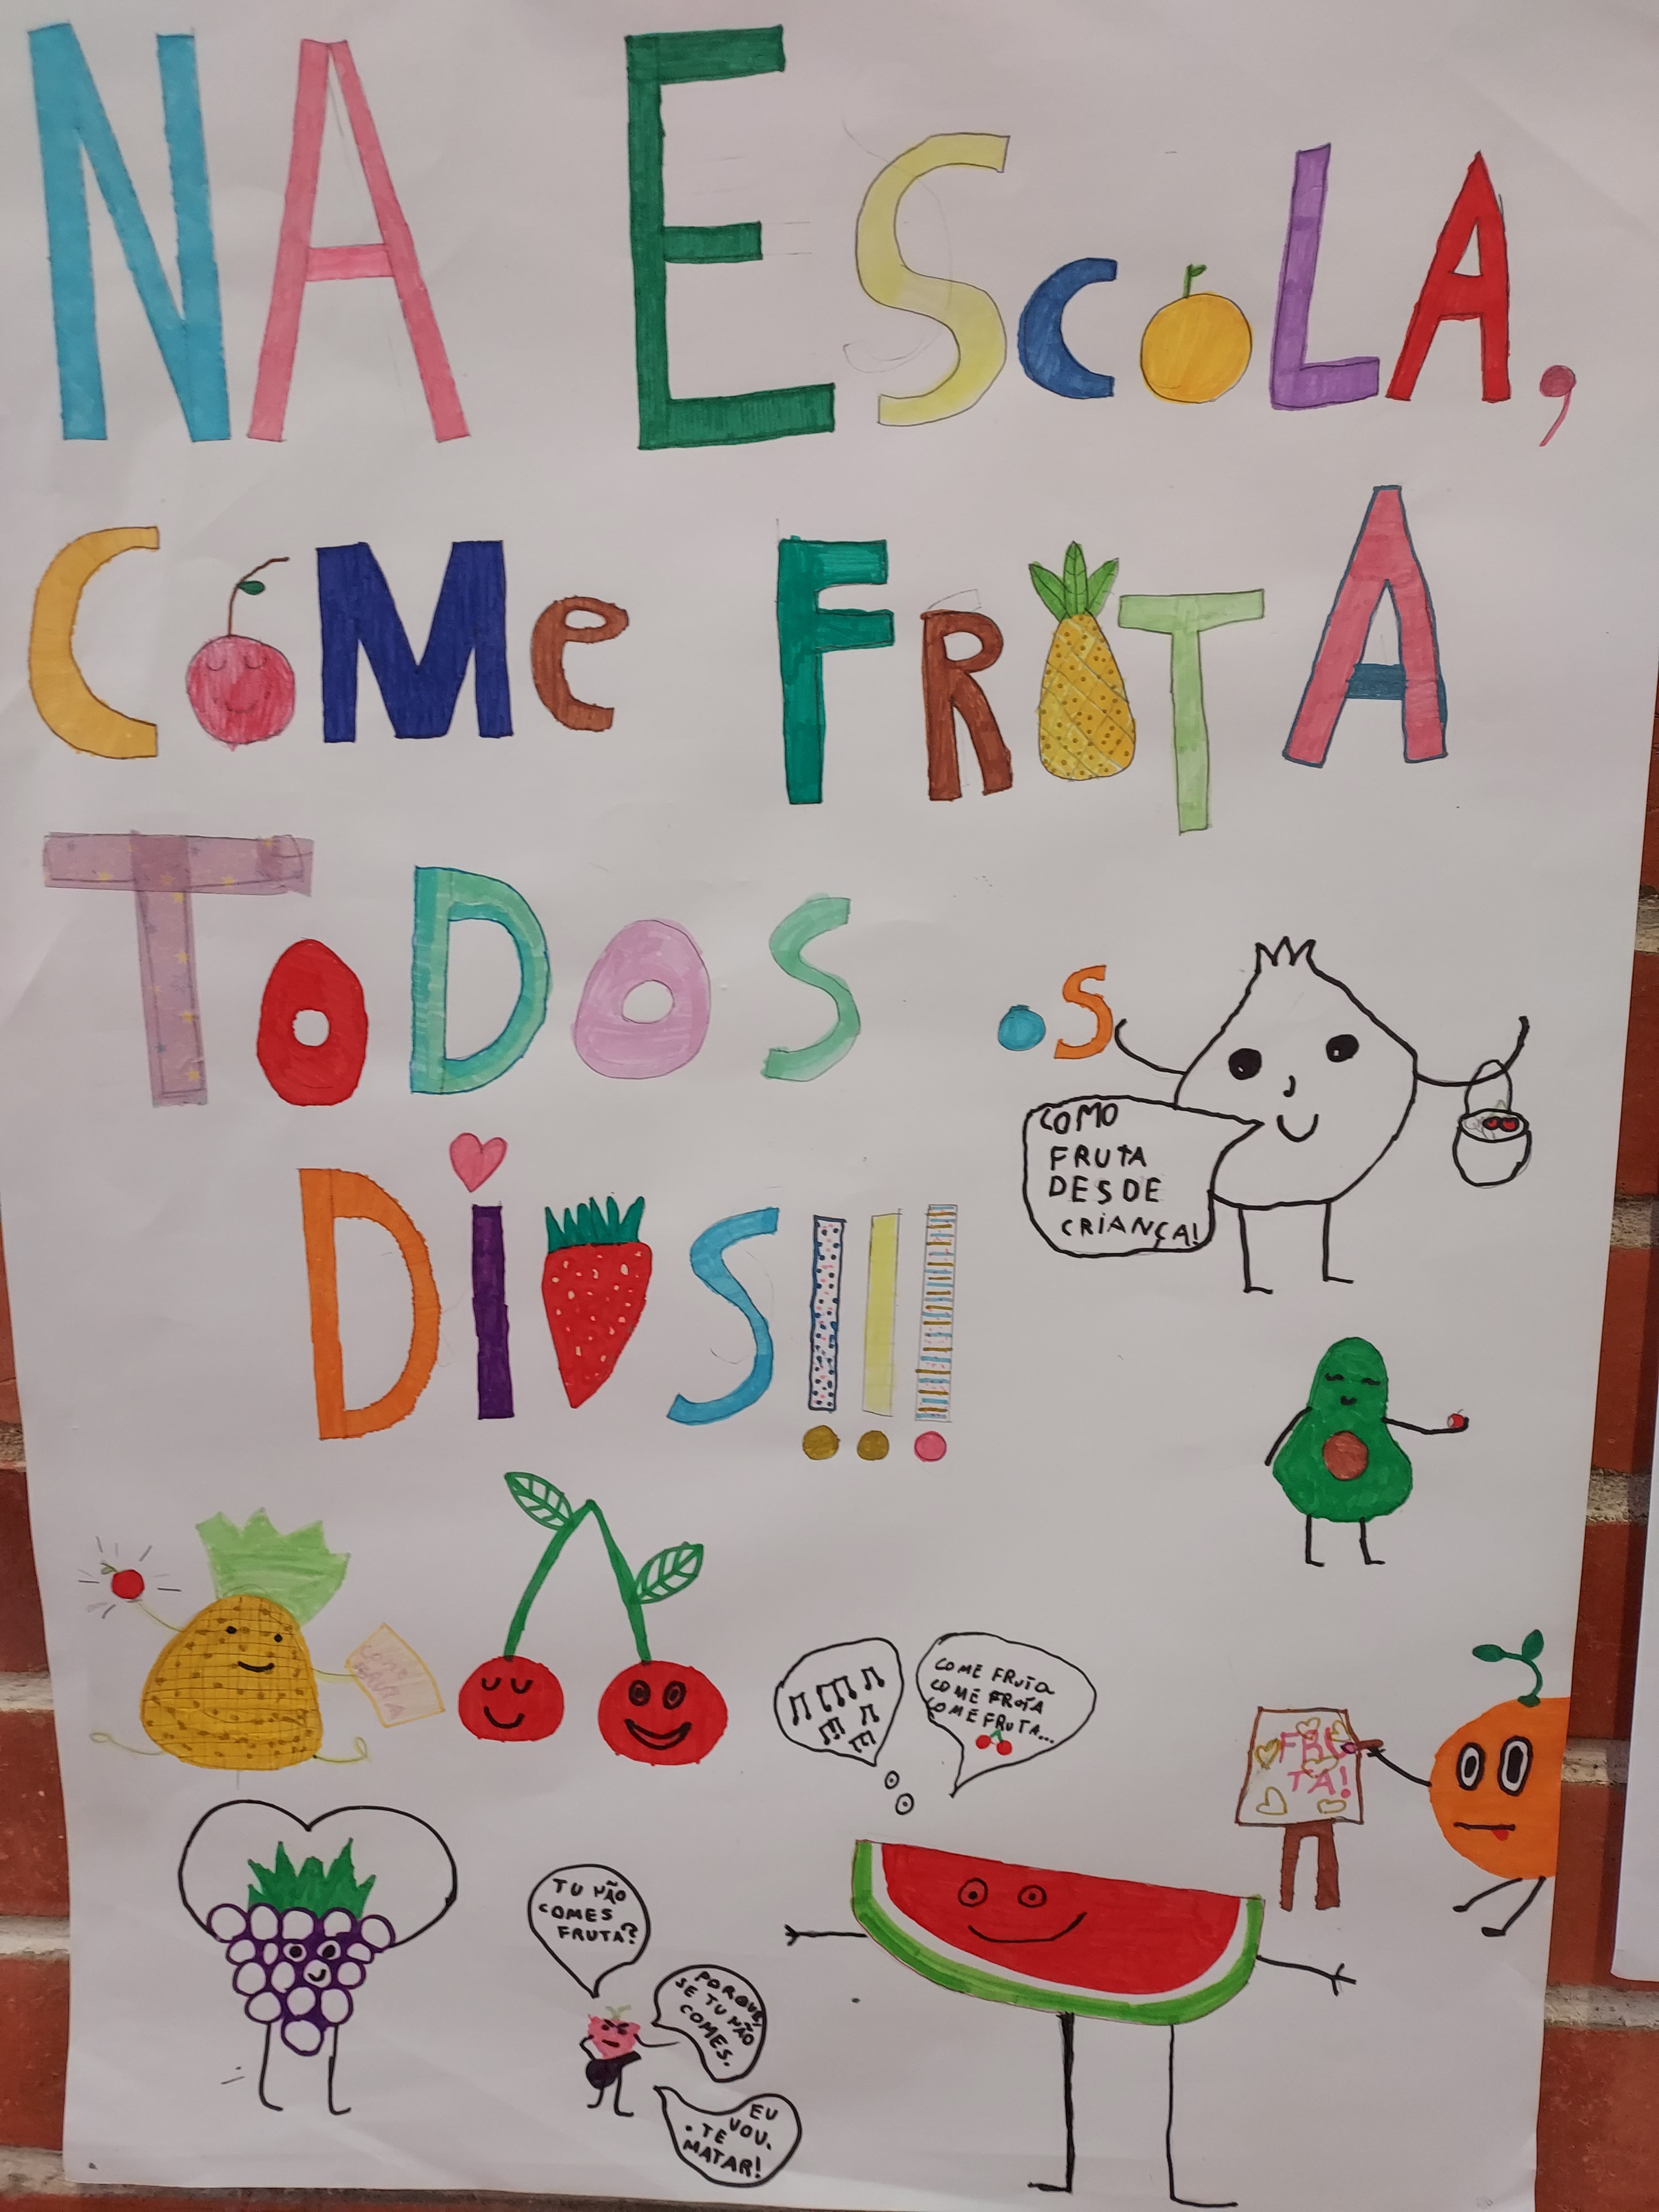 NA EScOLA,
COMe FRUTA
ToDOS os
DiAS!!!
COMO
FRUTA
DESDE
CRIANÇA!
COME
FRUTA
COME FRUTA
COME FRUTA
COME FRUTA...
FRU
TA!
TU NÃO
COMES
FRUTA?
PORQUE,
SE TU NÃO
COMES.
EU
VOU.
.TE
MATAR!